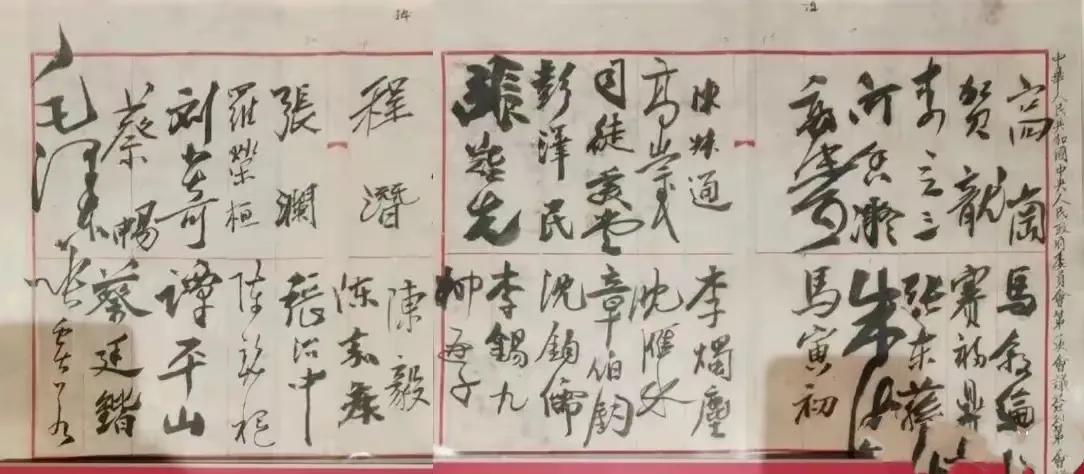 中華人民共和國中央人民政府委員會第一次會議
高崗 馬叙倫
賀龍 賽福鼎
李立三 張東蓀
何香凝 朱德
馬寅初
陳叔通 李燭塵
高崇民 沈雁冰
司徒美堂 章伯鈞
彭澤民 沈鈞儒
張難先 李錫九
柳亞子
程潛 陳毅
陳嘉庚
張瀾 張治中
羅榮桓
刘少奇 譚平山
蔡暢 蔡廷鍇
毛澤東